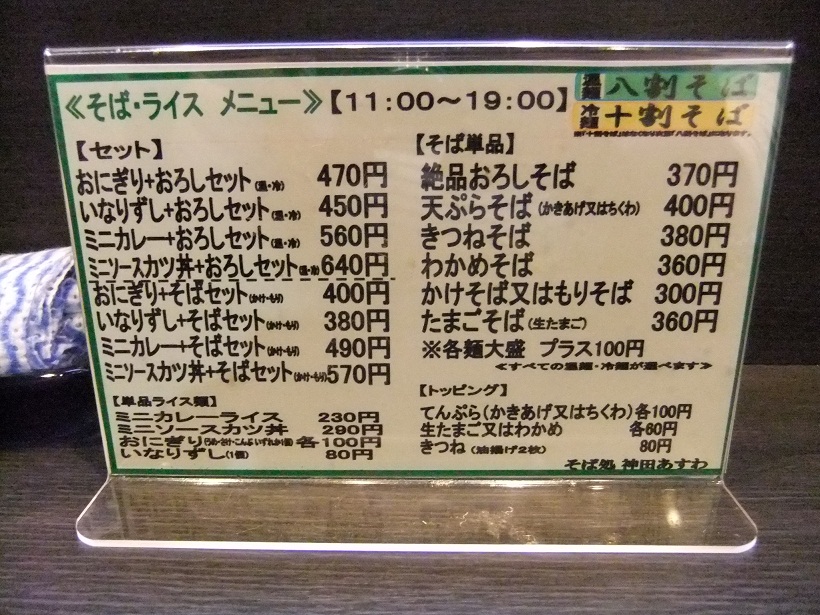 ≪そば・ライス メニュー≫【11:00〜19:00】
温麺 八割そば
冷麺 十割そば
【セット】
おにぎり+おろしセット(温・冷) 470円
いなりずし+おろしセット(温・冷) 450円
ミニカレー+おろしセット(温・冷) 560円
ミニソースカツ丼+おろしセット(温・冷) 640円
おにぎり+そばセット(かけ・もり) 400円
いなりずし+そばセット(かけ・もり) 380円
ミニカレー+そばセット(かけ・もり) 490円
ミニソースカツ丼+そばセット(かけ・もり) 570円
【単品ライス類】
ミニカレーライス 230円
ミニソースカツ丼 290円
おにぎり(うめ・さけ・こんぶ いずれか1個) 各100円
いなりずし(1個) 80円
【そば単品】
絶品おろしそば 370円
天ぷらそば(かきあげ又はちくわ) 400円
きつねそば 380円
わかめそば 360円
かけそば又はもりそば 300円
たまごそば(生たまご) 360円
※各麺大盛 プラス100円
≪すべての温麺・冷麺が選べます≫
【トッピング】
てんぷら(かきあげ又はちくわ)各100円
生たまご又はわかめ 各60円
きつね(油揚げ2枚) 80円
そば処 神田あすわ